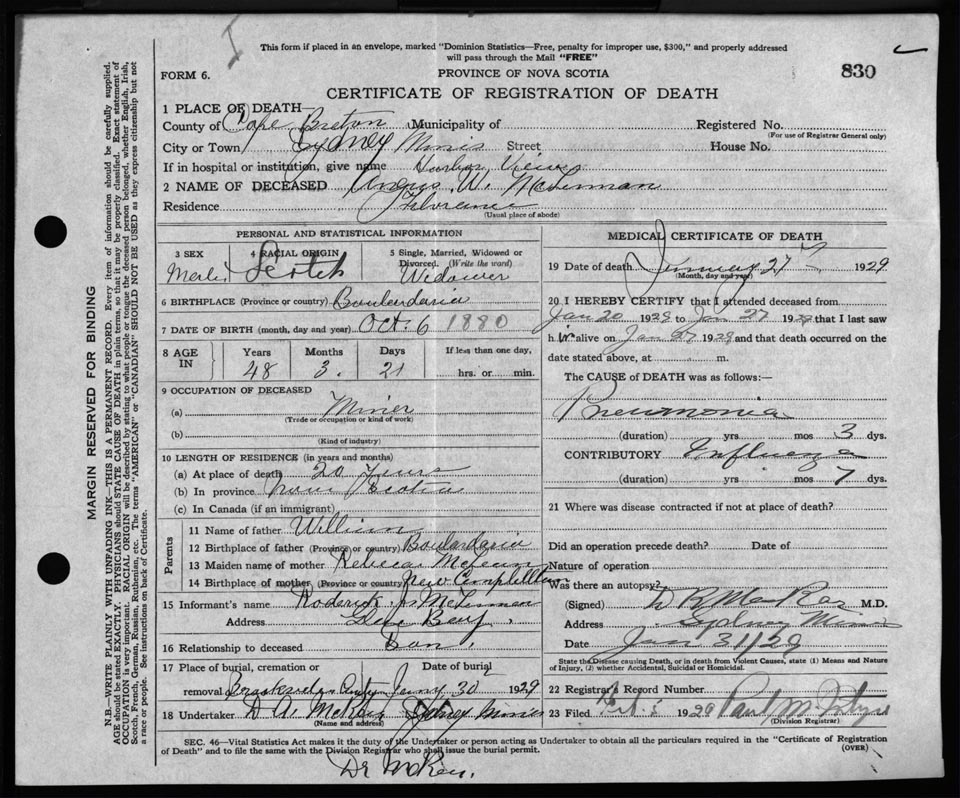 This form if placed in an envelope, marked "Dominion Statistics—Free, penalty for improper use, $300," and properly addressed
will pass through the Mail "FREE"
FORM 6.
PROVINCE OF NOVA SCOTIA
830
CERTIFICATE OF REGISTRATION OF DEATH
1 PLACE OF DEATH
County of Cape Breton Municipality of Registered No.
(For use of Registrar General only)
City or Town Sydney Mines Street House No.
If in hospital or institution, give name Harbor View
2 NAME OF DECEASED Angus W.
Residence Florence
(Usual place of abode)
PERSONAL AND STATISTICAL INFORMATION
3 SEX 4 RACIAL ORIGIN 5 Single, Married, Widowed or
Divorced. (Write the word)
Scotch Widower
6 BIRTHPLACE (Province or country) Boulardarie
7 DATE OF BIRTH (month, day and year) Oct. 6 1880
8 AGE IN Years Months Days If less than one day,
48 3. 21 hrs. or min.
9 OCCUPATION OF DECEASED
(a) Miner
(Trade or occupation or kind of work)
(b)
(Kind of industry)
10 LENGTH OF RESIDENCE (in years and months)
(a) At place of death 20 Years
(b) In province Nova Scotia
(c) In Canada (if an immigrant)
Parents
11 Name of father William
12 Birthplace of father (Province or country) Boulardarie
13 Maiden name of mother Rebecca McLean
14 Birthplace of mother (Province or country) New Campbellton
15 Informant's name Roderick
Address
16 Relationship to deceased Son.
17 Place of burial, cremation or Date of burial
removal 30 1929
18 Undertaker D. A. Sydney Mines
(Name and address)
MEDICAL CERTIFICATE OF DEATH
19 Date of death January 27 1929
(Month, day and year)
20 I HEREBY CERTIFY that I attended deceased from
Jan 20 1929 to Jan 27 1929 that I last saw
him alive on Jan 27 1929 and that death occurred on the
date stated above, at m.
The CAUSE of DEATH was as follows:—
Pneumonia
(duration) yrs mos 3 dys.
CONTRIBUTORY Influenza
(duration) yrs mos 7 dys.
21 Where was disease contracted if not at place of death?
Did an operation precede death? Date of
Nature of operation
Was there an autopsy?
(Signed) M.D.
Address Sydney Mines
Date Jan 31/29
State the Disease causing Death, or in death from Violent Causes, state (1) Means and Nature
of Injury, (2) whether Accidental, Suicidal or Homicidal.
22 Registrars Record Number
23 Filed 1929 Paul
(Division Registrar)
SEC. 46—Vital Statistics Act makes it the duty of the Undertaker or person acting as Undertaker to obtain all the particulars required in the "Certificate of Registration
of Death" and to file the same with the Division Registrar who shall issue the burial permit.
(OVER)
Dr
MARGIN RESERVED FOR BINDING
N.B.—WRITE PLAINLY WITH UNFADING INK—THIS IS A PERMANENT RECORD. Every item of information should be carefully supplied.
AGE should be stated EXACTLY. PHYSICIANS should STATE CAUSE OF DEATH in plain terms, so that it may be properly classified. Exact statement of
OCCUPATION is very important. RACIAL ORIGIN will be described by stating to what people or tongue the deceased person belonged, whether English, Irish,
Scotch, French, German, Russian, Ruthenian, etc. The terms "AMERICAN" or "CANADIAN" SHOULD NOT BE USED as they express citizenship but not
a race or people. See instructions on back of Certificate.